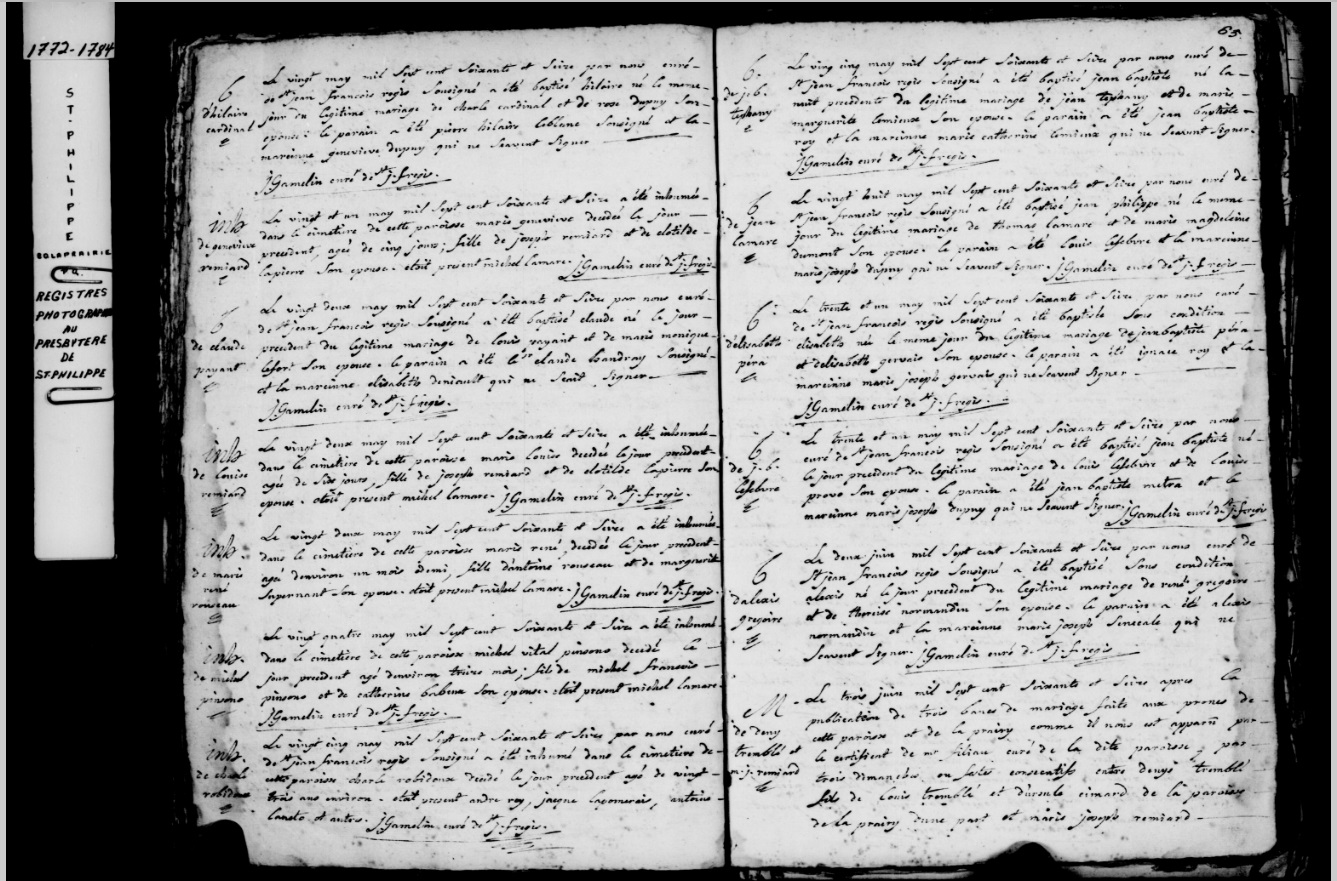 1772-1784
ST-PHILIPPE
REGISTRES
PHOTOGRAPHIE
AU
PRESBYTERE
DE
ST-PHILIPPE
6
d'hilaire
cardinal
Le vingt may mil sept cent soixante et seize par nous curé
de st jean francois regis sousigné a été baptisé hilaire né le meme
jour du legitime mariage de charle cardinal et de rose dupuy son
epouse. le parain a été pierre hilaire leblanc sousigné et la
mareinne genevieve dupuy qui ne seavent signer
J Gamelin curé de st j. f regis.
inh
de genevieve
remiard
Le vingt et un may mil sept cent soixante et seize a été inhumée
dans le cimetiere de cette paroisse marie genevieve decedée le jour
precident, agée de cinq jours; fille de joseph remiard et de clotilde
lapierre son epouse. etoit present michel lamare. J Gamelin curé de st j. f regis
6
de claude
payant
Le vingt deux may mil sept cent soixante et seize par nous curé
de st jean francois regis sousigné a été baptisé claude né le jour
precident du legitime mariage de louis payant et de marie monique
lefort son epouse. le parain a été le sr claude sousigné
et la mareinne elisabeth deniault qui ne scait signer
J Gamelin curé de st j. f regis.
inh
de louise
remiard
Le vingt deux may mil sept cent soixante et seize a été inhumée
dans le cimetiere de cette paroisse marie louise decedée le jour precident
agé de six jours, fille de joseph remiard et de clotilde lapierre son
epouse. etoit present michel lamare. J Gamelin curé de st j. f regis.
inh.
de marie
rené
roiseau
Le vingt deux may mil sept cent soixante et seize a été inhumée
dans le cimetiere de cette paroisse marie rené, decedée le jour precident
agé denviron un mois et demi, fille d'antoine rouseau et de marguerit
supernant son epouse. etoit present michel lamare. J Gamelin curé de st j. f regis.
inh.
de michel
pinsono
Le vingt quatre may mil sept cent soixante et seize a été inhumé
dans le cimetiere de cette paroisse michel vital pinsono decedé le
jour precident agé denviron treize mois; fils de michel francois
pinsono et de catherine babeux son epouse. etoit present michel lamare.
J Gamelin curé de st j. f regis.
inh.
de charle
robidoux
Le vingt cinq may mil sept cent soixante et seize par nous curé
de st jean francois regis sousigné a été inhumé dans le cimetiere de
cette paroisse charle robidoux decedé le jour precident agé de vingt
trois ans environ. etoit present andre roy, jacque lapomerais, antoine
et autres. J Gamelin curé de st j. f regis.
65
6.
de j. b.
tephany
Le ving cinq may mil sept cent soixante et seize par nous curé de
st jean francois regis sousigné a été baptisé jean baptiste né la
nuit precidente du legitime mariage de jean tephany et de marie
marguerite lemieux son epouse. le parain a été jean baptiste
roy et la mareinne marie catherine lemieux qui ne seavent signer.
J Gamelin curé de st j. f regis.
6
de jean
lamare
Le vingt huit may mil sept cent soixante et seize par nous curé de
st jean francois regis sousigné a été baptisé jean philippe né le meme
jour du legitime mariage de thomas lamare et de marie magdeleine
dumont son epouse. le parain a été louis lefebvre et la mareinne
marie joseph dupuy qui ne seavent signer. J Gamelin curé de st j. f regis
6
delisabeth
péra
Le trente et un may mil sept cent soixante et seize par nous curé
de st jean francois regis sousigné a été baptisé sous condition
elisabeth née le meme jour du legitime mariage de jean baptiste péra
et delisabeth gervais son epouse. le parain a été ignace roy et la
mareinne marie joseph gervais qui ne seavent signer.
J Gamelin curé de st j. f regis.
6
de j. b.
lefebvre
Le trente et un may mil sept cent soixante et seize par nous
curé de st jean francois regis sousigné a été baptisé jean baptiste né
le jour precident du legitime mariage de louis lefebvre et de louise
provo son epouse. le parain a été jean baptiste metra et la
mareinne marie joseph dupuy qui ne seavent signer. J Gamelin curé de st j. f regis
6
dalexis
gregoire
Le deux juin mil sept cent soixante et seize par nous curé de
st jean francois regis sousigné a été baptisé sous condition
alexis né le jour precident du legitime mariage de rené gregoire
et de therese normandin son epouse. le parain a été alexis
normandin et la mareinne marie joseph senecale qui ne
seavent signer. J Gamelin curé de st j. f regis
M
de deny
tremblé et
m. j. remiard
Le trois juin mil sept cent soixante et seize apres la
publication de trois bancs de mariage faite aux prones de
cette paroisse et de la prairy comme il nous est apparu par
le certificat de mr filiau curé de la dite paroisse, par
trois dimanches ou fetes consecutifs entre denys tremblé
fils de louis tremblé et d'ursule simard de la paroisse
de la prairy d'une part et marie joseph remiard